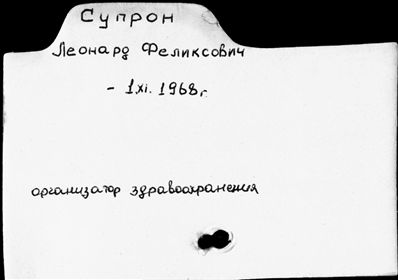 Супрон
Леонард Феликсович
- 1 XI. 1968 г.
организатор здравоохранения